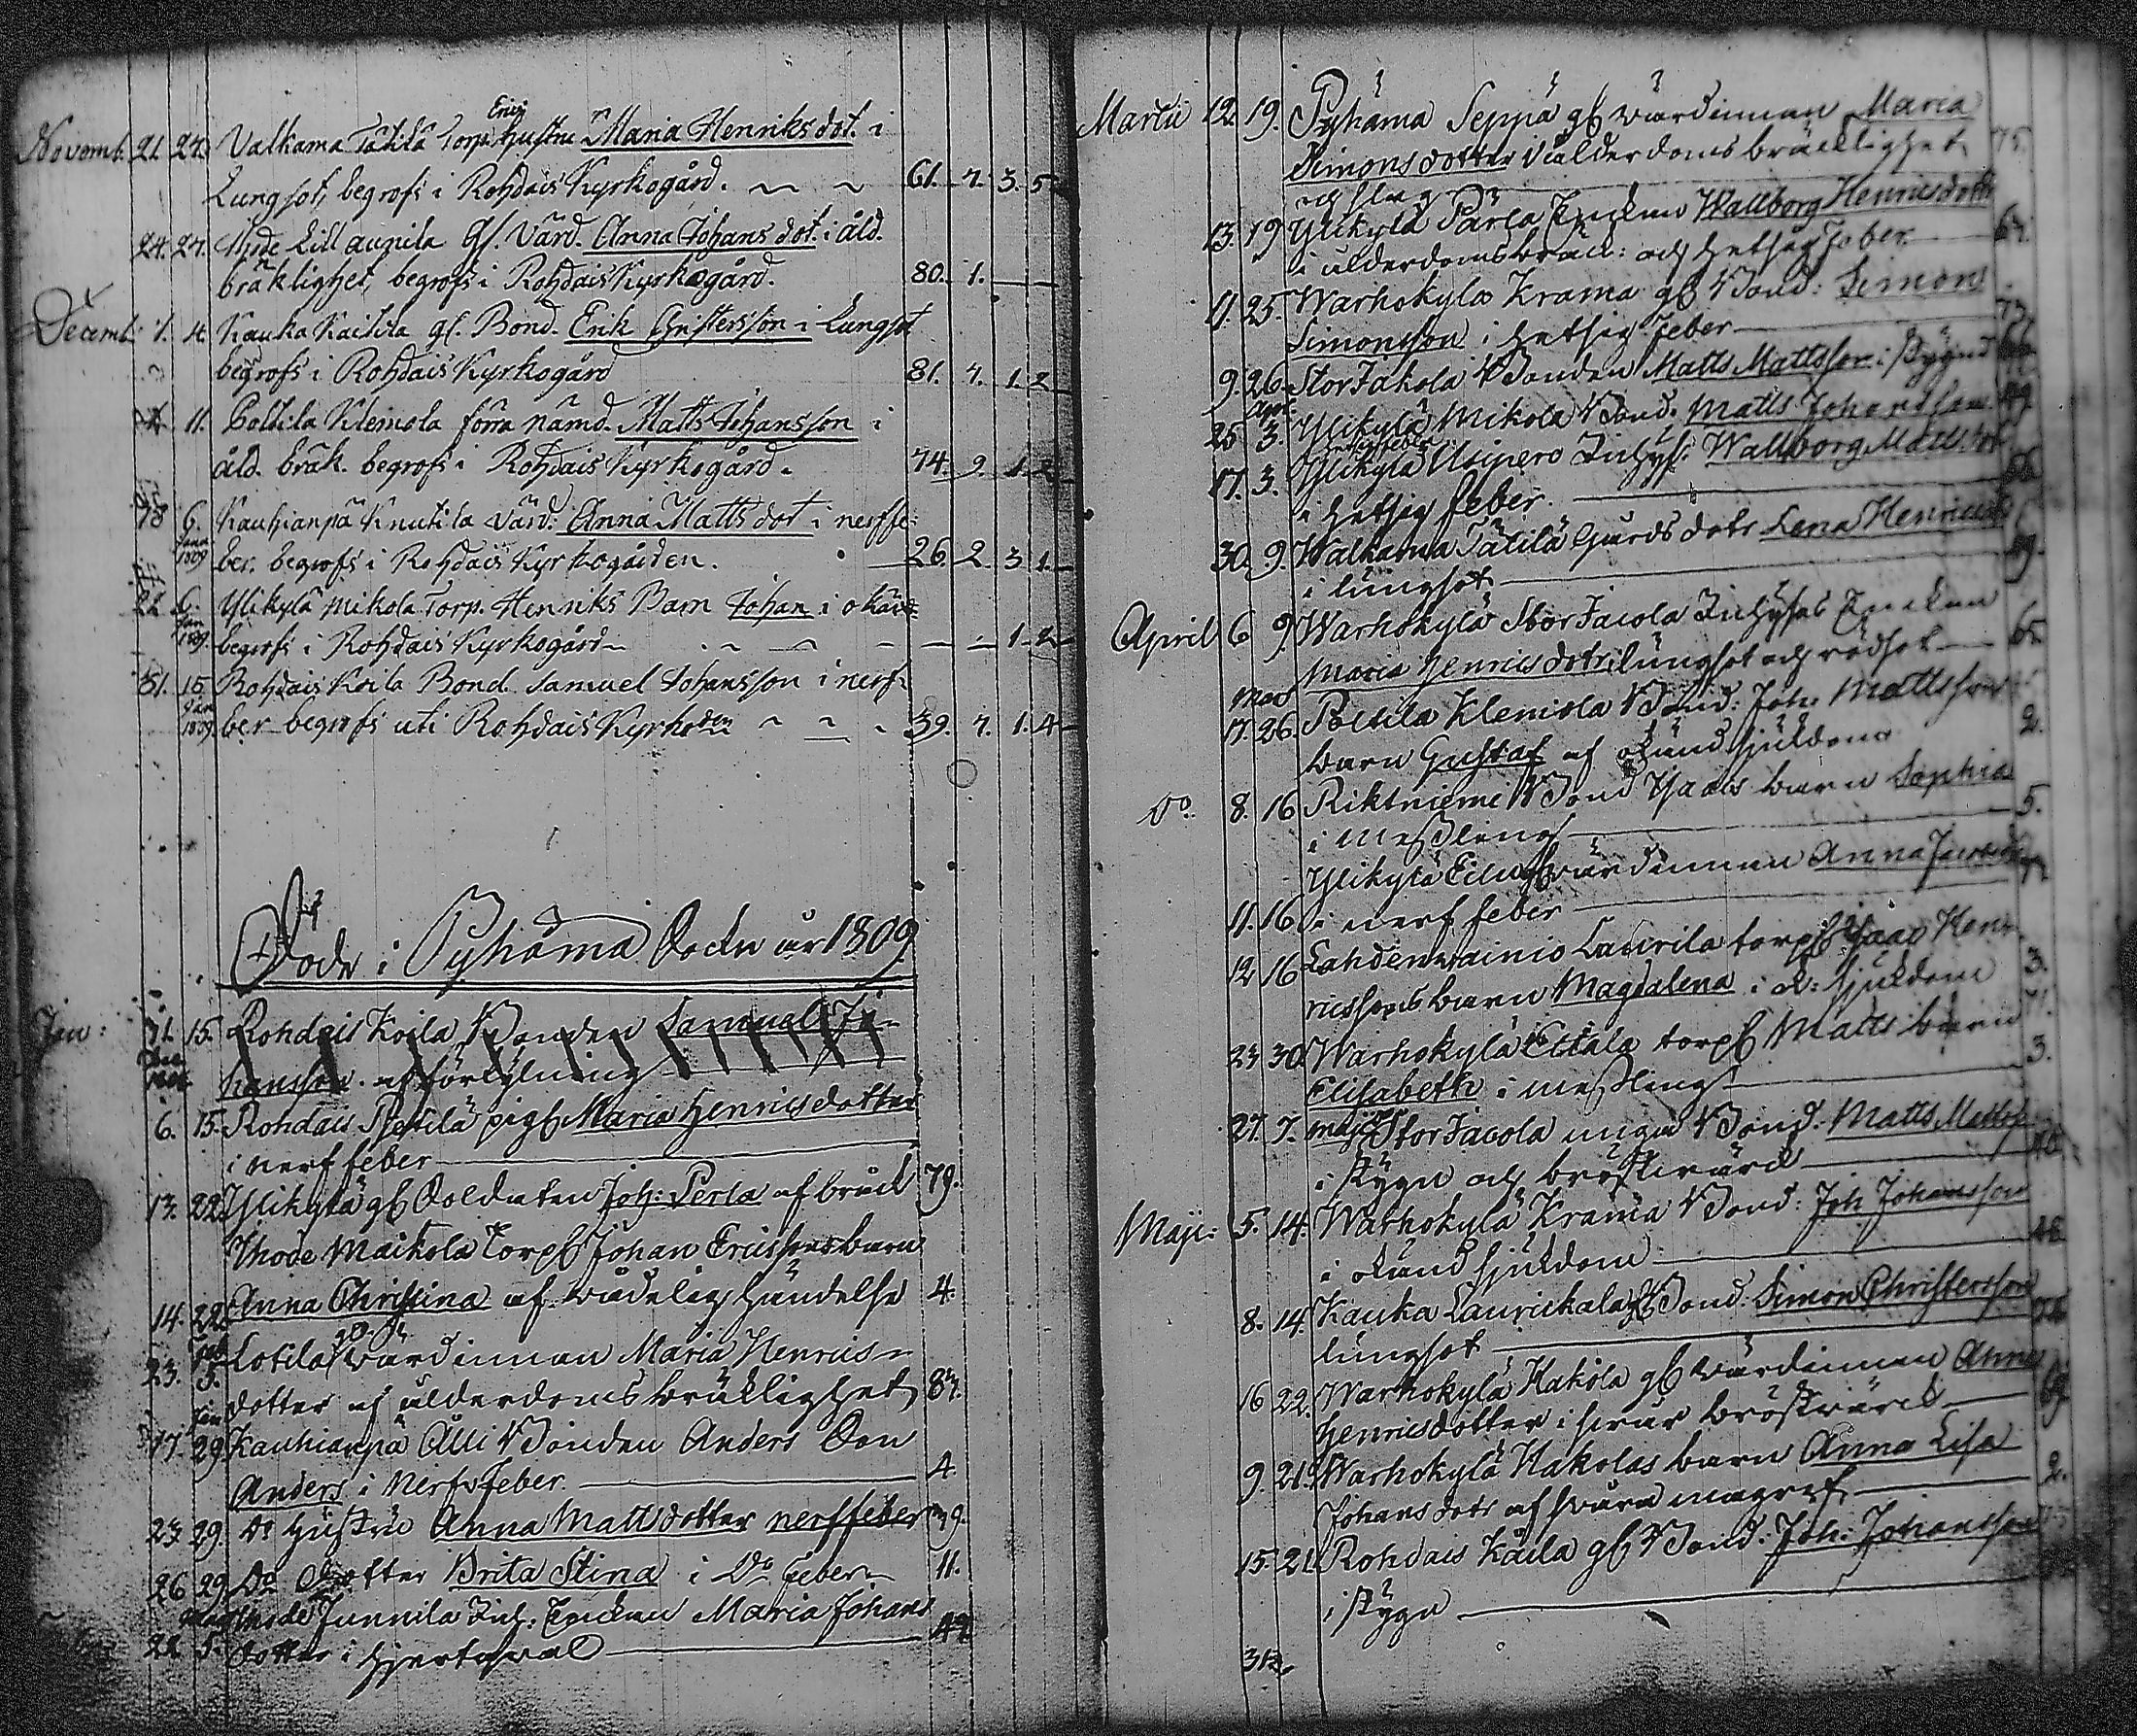 Novemb. 21. 27. Valkama Tätilä Torp. Erics Hustru Maria Henriksdot. i
Lungsot, begrofs i Rohdais Kyrkogård. 61. 7. 3. 5
24. 27. Ihode Lill aunila Gl. Värd. Anna Johansdot. i åld.
bräklighet, begrofs i Rohdais Kyrkogård. 80. 1.
Decemb. 1. 4. Kauka Kaitila gl. Bond. Erik Christersson i Lungsot
begrofs i Rohdais Kyrkogård 81. 7. 1. 2
11. Poltila Klemola förra nämd. Matts Johansson i
åld. bräk. begrofs i Rohdais Kyrkogård. 74. 9. 1. 2
18 6. Kauhianpä Knutila värd: Anna Matts dot i nerffe-
Janu 1809 ber. begrofs i Rohdais Kyrkogården. 26. 2. 3 1
22 6. Ylikylä Mikola Torp. Henriks Barn Johan i okänd
Jan 1809. begrofs i Rohdais Kyrkogård 1. 2
31. 15 Rohdais Koila Bond. Samuel Johansson i nerf-
Jan 1809. ber begrofs uti Rohdais Kyrko 39. 7. 1. 4
Döde i Pyhäma Sockn år 1809.
Jan: 31. 15. Rohdais Koila Bonden Samuel Jo-
hansson af förkylning
6. 15. Rohdais pig Maria Henricsdotter
i nerffeber
13. 22. Ylikylä gl Soldaten Joh: Perla af bråck 79.
Ihode Maikola Torp Johan Ericssons barn
14. 22. Anna Christina af wådelig händelse 4.
23. 5. Lotila wärdinnan Maria Henrics-
dotter af ålderdoms bräklighet 87.
17. 29. Kauhianpä Alli Bonden Anders Son
Anders i Nerffeber. 4.
23. 29. Do Hustru Anna Mattsdotter nerffeber 39.
26 29 Do Dotter Brita Stina i Do feber 11.
Ihode Junnila Inh: Enckan Maria Johans
22 5. dotter i Hjertqval
Martii 12. 19. Pyhäma Seppä gl wärdinnan Maria
Simonsdotter i ålderdoms bräcklighet 75.
och slag
13. 19 Ylikylä Pärla Enckan Wallborg Henricsdotter
i ålderdomsbräck: och hetsig feber 67.
11. 25. Warhokyla Krama gl Bond: Simon
Simonsson i hetsig feber 73.
9. 26. StorJakola Bonden Matts Mattsson i stygn
25 3. Ylikylä Mikola Bond. Matts Johansson
17. 3. Ylikylä Usipero Inhys: Wallborg Mattsdot
i hetsig feber.
30. 9. Walkama Tätilä Gårds dotr Lena Henricsd
i lungsot
April 6 9. Warhokylä Stor Jacola Inhyses Enckan
Maria Henricsdotr i lungsot och rödsot 65
Mars 17. 26. Poltila Klemola Bond: Joh. Mattssons
barn Gustaf af okänd sjukdom 2.
Do. 8. 16 Riktniemi Bond Isaacs barn Sophia
i messling 5.
Ylikylä Eilu wärdinnan Anna Jacobsd
11. 16 i nerffeber
12 16 Lahdenwainio Laurila torp Isaac Hen-
ricssons barn Magdalena i o: sjukdom 3.
23 30. Warhokylä torp Matts barn
Elisabeth i messling 3.
27. 7. maji StorJacola unga Bond: Matts Mattss
i stygn och bröstwärck 40.
Maji: 5. 14. Warhokylä Krama Bond: Joh Johansson
i okänd sjukdom 48
8. 14. Kauka Laurickala Bond: Simon Christersson
lungsot
16 22. Warhokylä Hakola gl wärdinnan Anna
Henricsdotter i swår bröstwärck 69
9. 21. Warhokylä Hakolas barn Anna Lisa
Johansdotr af swåra magref 2.
15. 21. Rohdais Kåila gl Bond: Joh: Johansson
i stygn